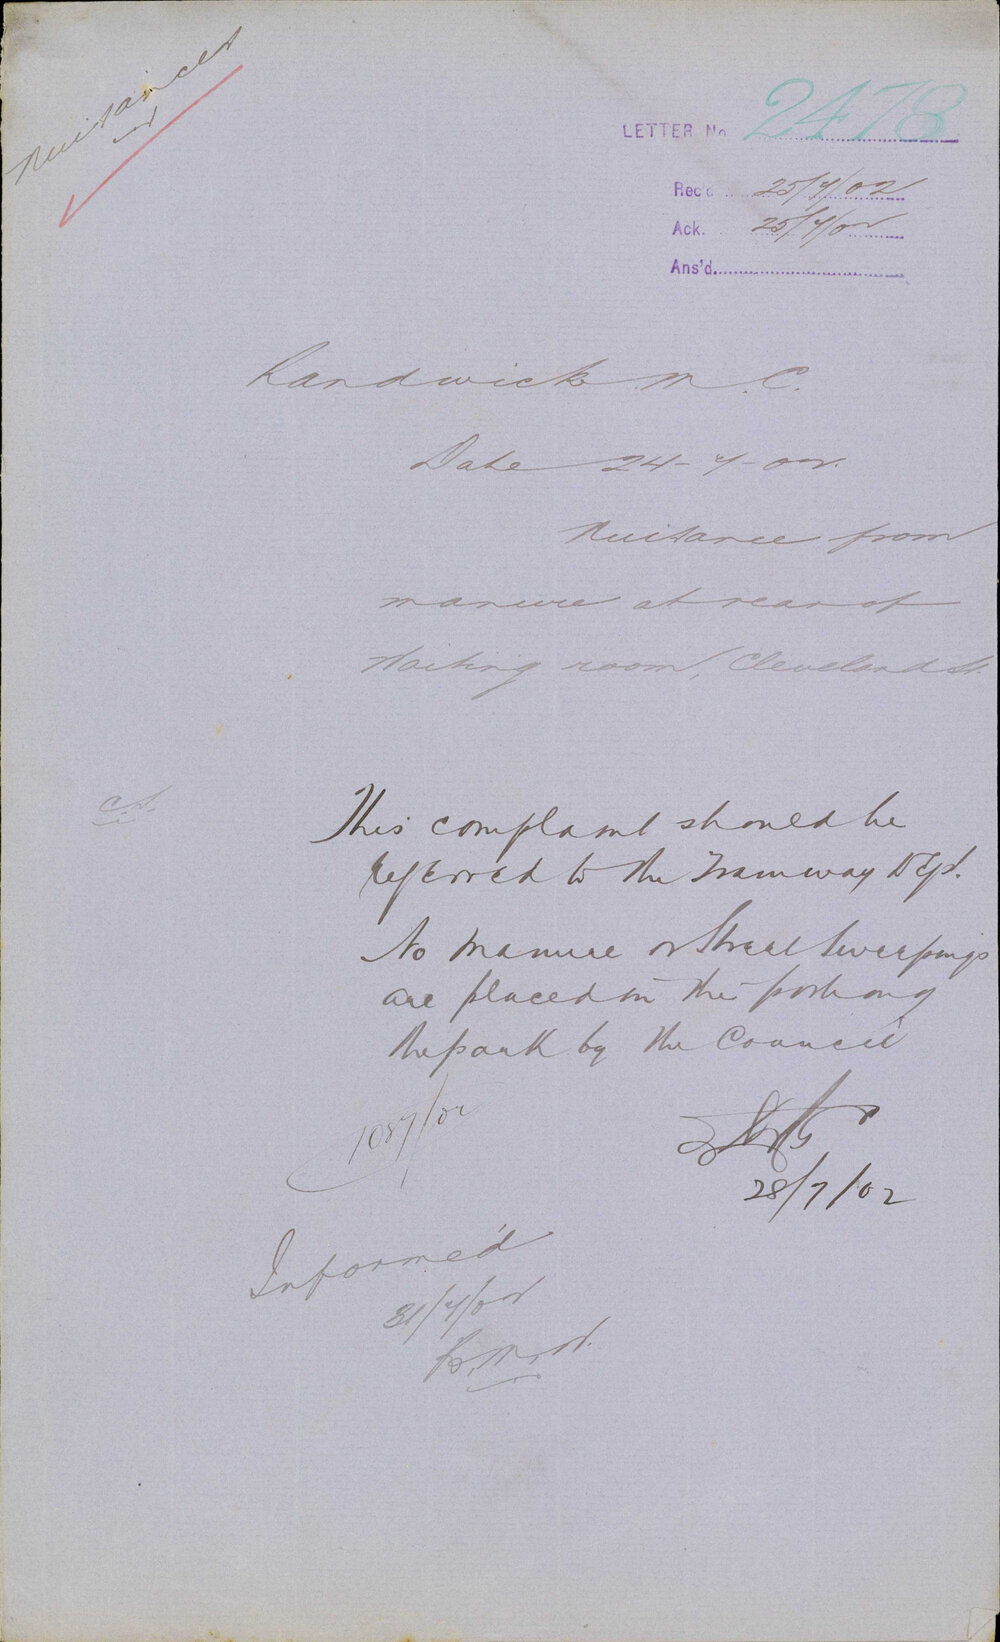 Nuisances
LETTER No 2478
Rec'd 25/7/02
Ack. 25/7/02
Ans'd
Randwick M. C.
Date 24-7-02.
Nuisance from
manure at rear of
Waiting room, Cleveland St.
This complaint should be
referred to the Tramway Dept.
No manure or Street Sweepings
are placed in this portion of
the park by the Council
28/7/02
1087/02
Informed
31/7/02